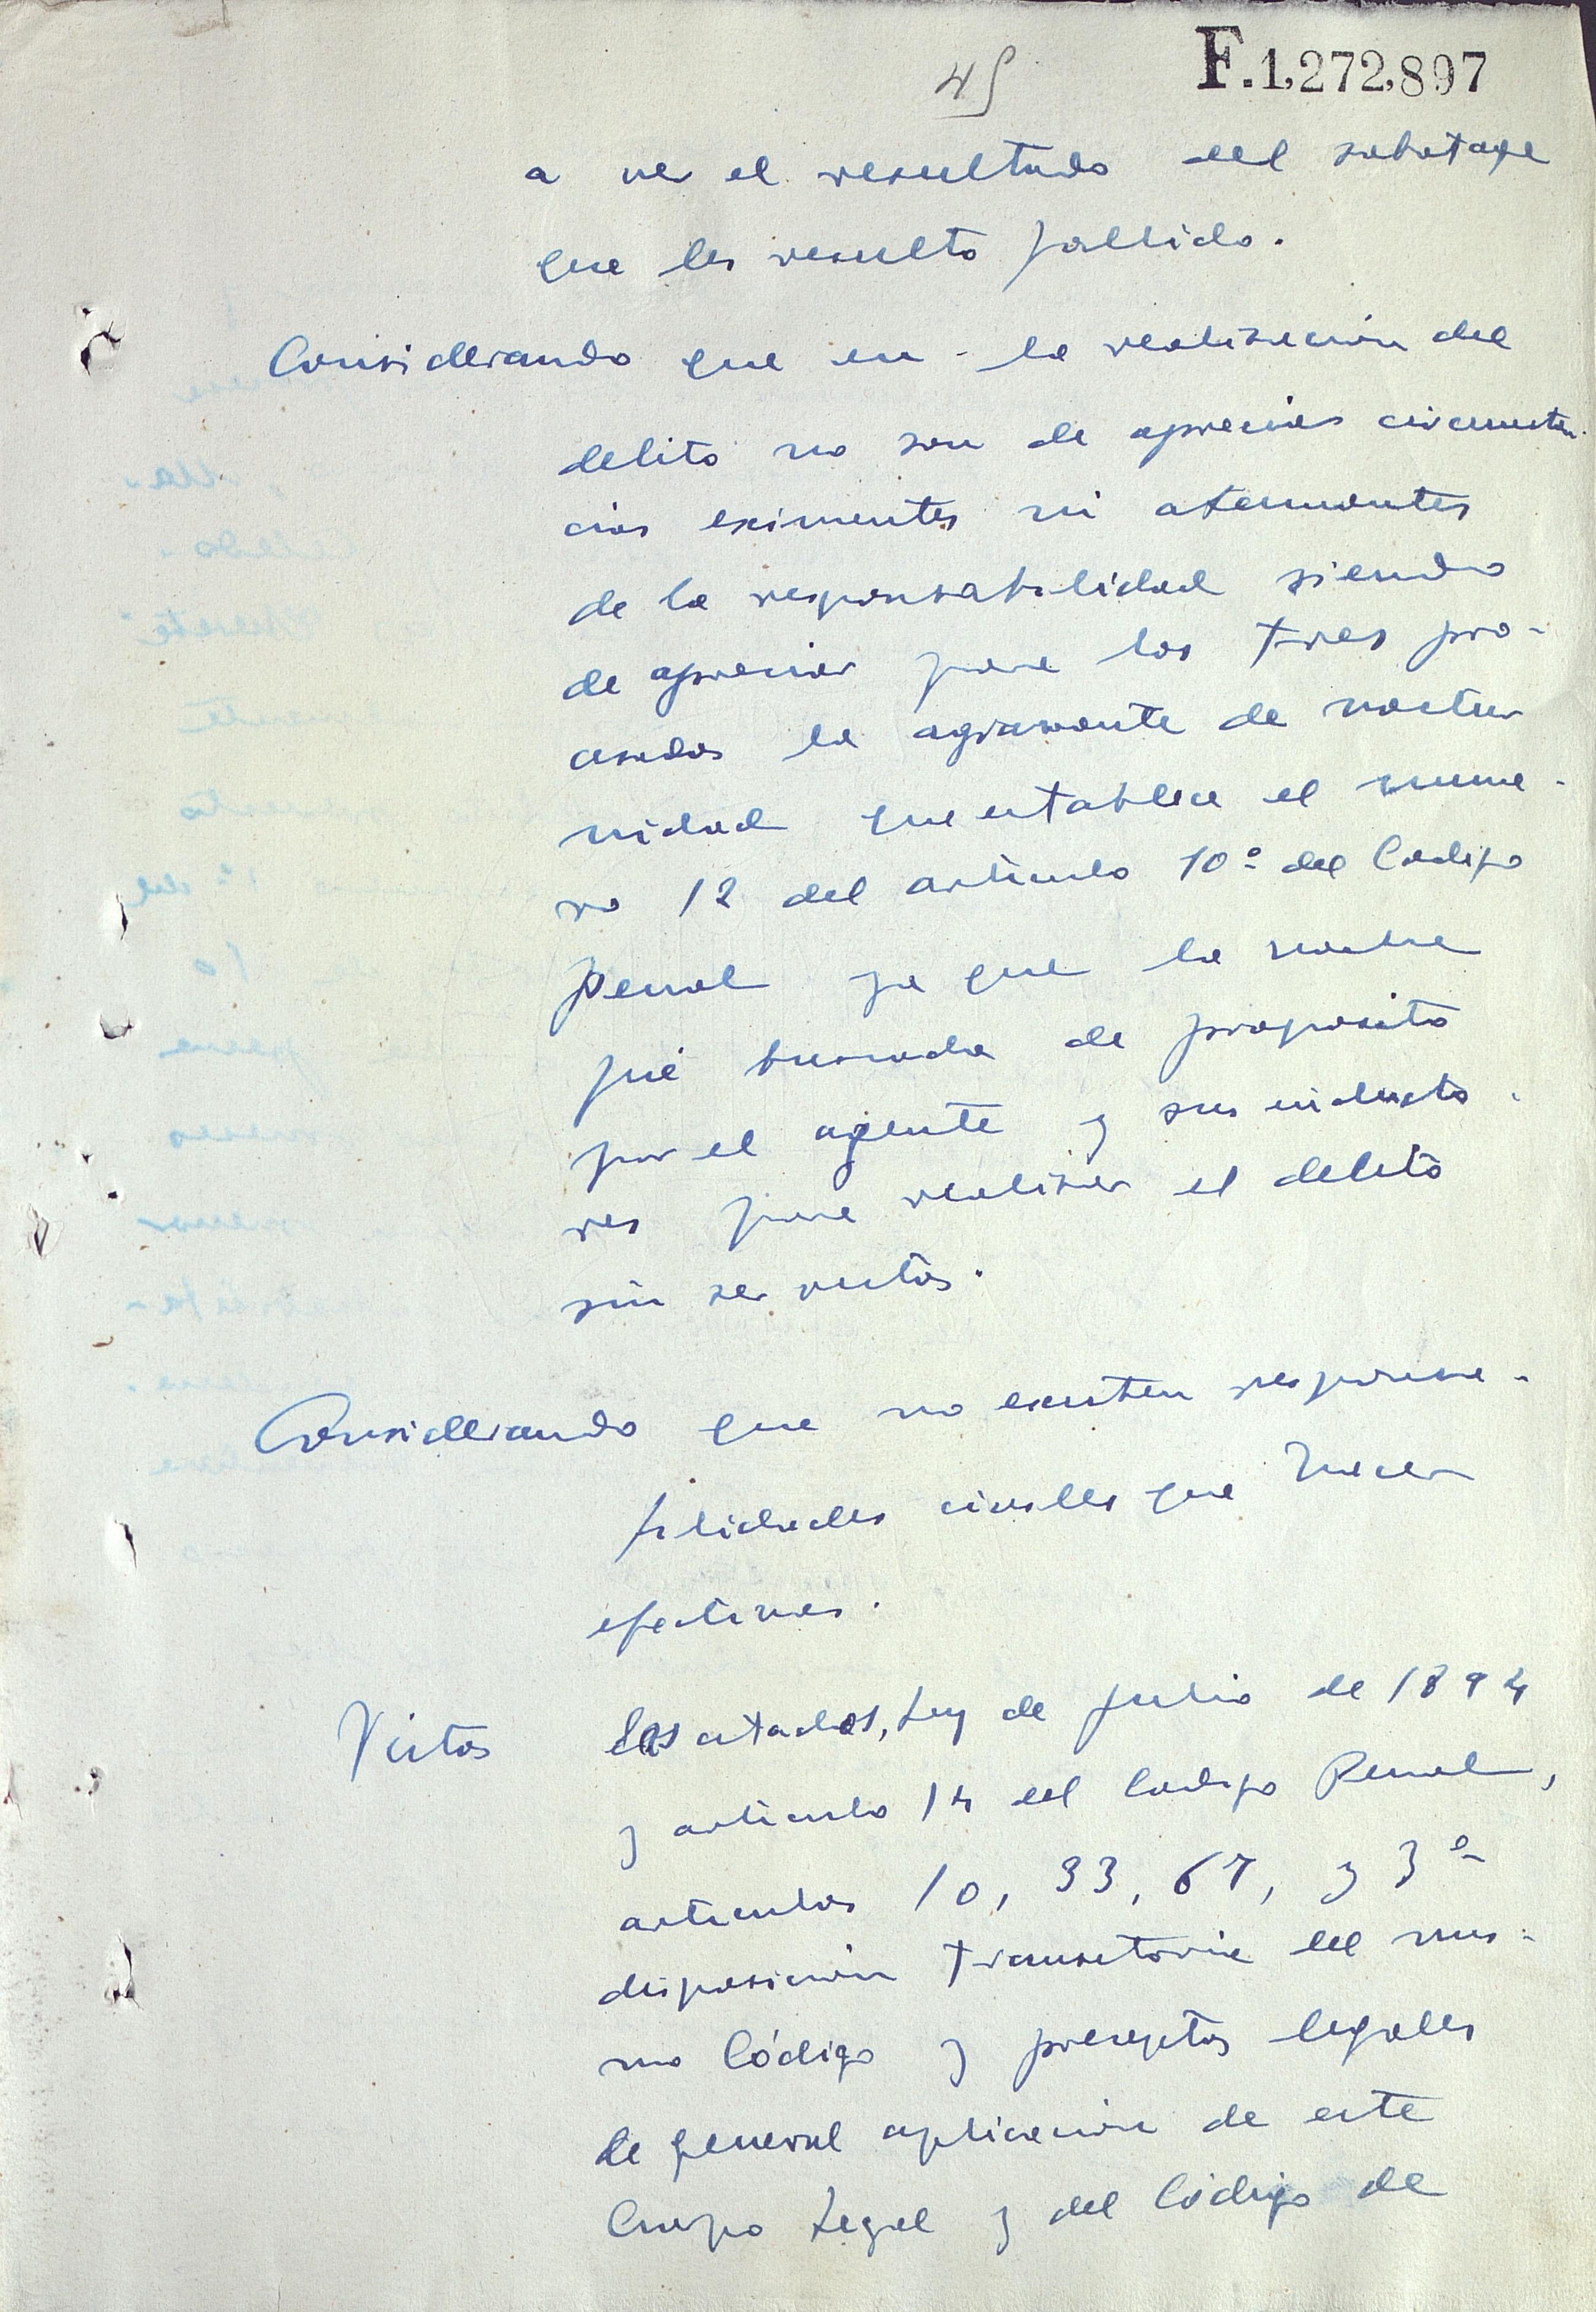 45
F.1,272,897
a ver el resultado del sabotage
que les resulto fallido.
Considerando que en la realización del
delito no son de apreciar circunstan-
cias eximentes ni atenuantes
de la responsabilidad siendo
de apreciar para los tres pro-
cesados la agravante de noctur
nidad que establece el nume-
ro 12 del articulo 10º del Codigo
Penal ya que la noche
fué buscada de proposito
por el agente y sus inducto-
res para realizar el delito
sin ser vistos.
Considerando que no existen responsa-
bilidades civiles que hacer
efectivas.
Vistos los citados, Ley de Julio de 1894
y articulo 14 del Codigo Penal,
articulos 10, 33, 67, y 3ª
disposición transitoria del mis-
mo Código y preceptos legales
de general aplicación de este
Cuerpo Legal y del Código de